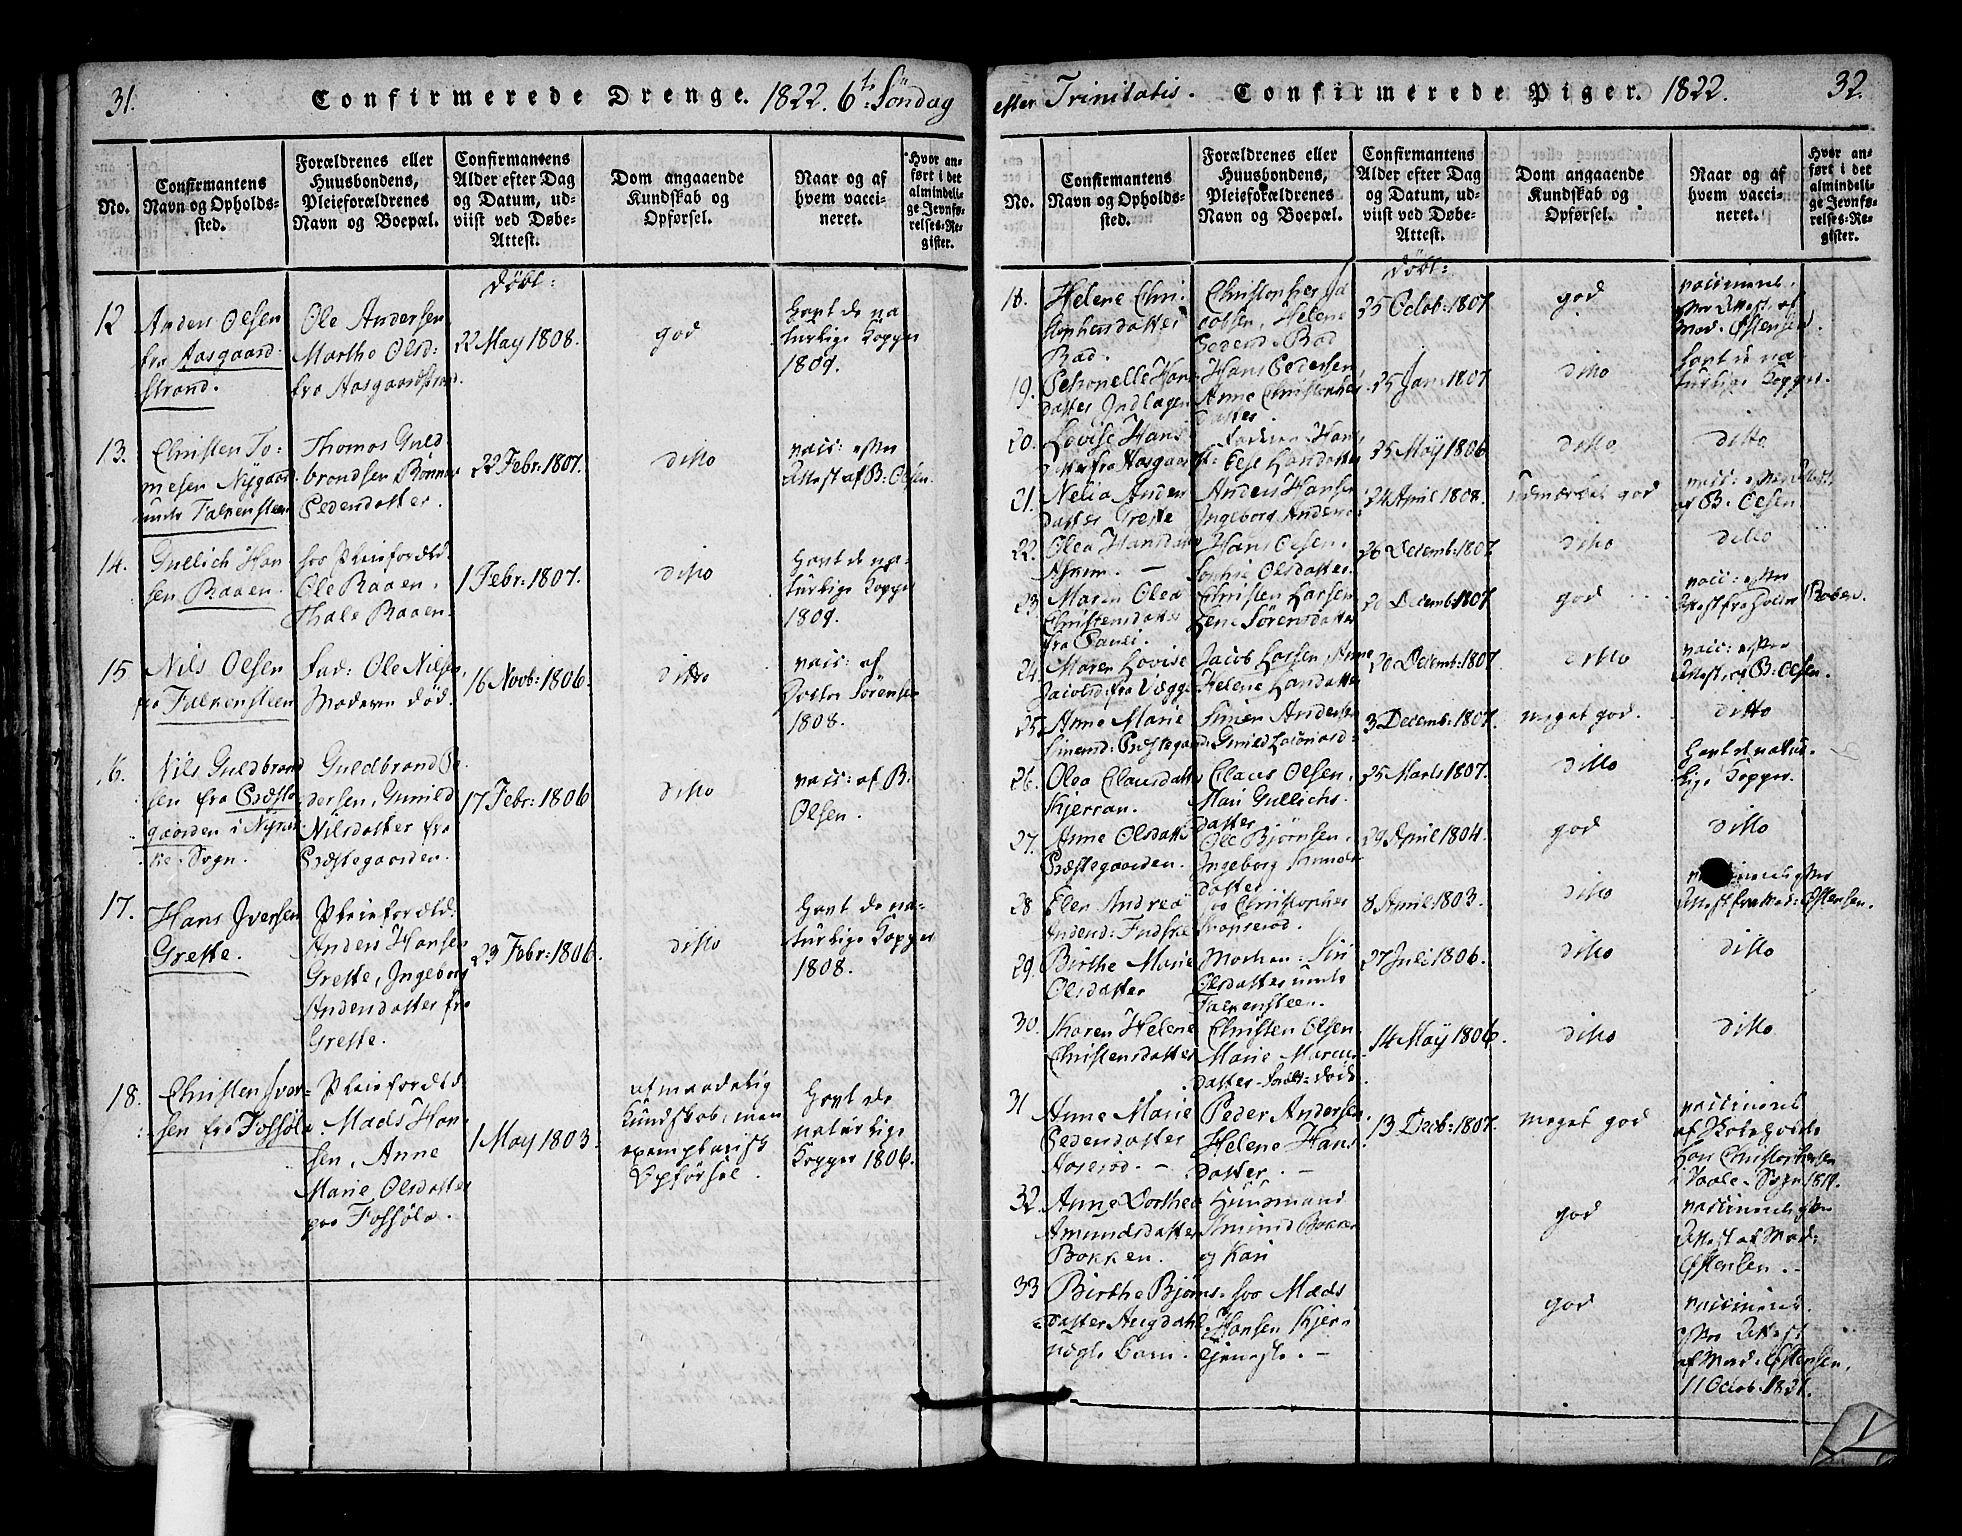 31.
Confirmerede Drenge. 1822. 6te Søndag
No.
Confirmantens
Navn og Opholds-
sted.
Forældrenes eller
Huusbondens,
Pleieforældrenes
Navn og Boepæl.
Confirmantens
Alder efter Dag
og Datum, ud-
viist ved Døbe-
Attest.
Dom angaaende
Kundskab og
Opførsel.
Naar og af
hvem vacci-
neret.
Hvor an-
ført i det
almindeli-
ge Jevnfø-
relses-Re-
gister.
døbt:
12
Anders Olsen
fra Aasgaard-
strand.
Ole Andersen
Marthe Olsd:
fra Aasgaardstrand
22 May 1808.
god
havt de na
turlige Kopper
1809.
13.
Christen To-
mesen Nygaard
under Falkensteen
Thomas Guld
brandsen Rønnau
Pedersdatter.
22 Febr: 1807.
ditto
vacc: efter
Attest af B: Olsen.
14.
Gullich Han
sen Raaen.
hos Pleieforæld:
Ole Raaen,
Thale Raaen.
1 Febr: 1807.
ditto
havt de na-
turlige Kopper
1809.
15
Nils Olsen
fra Falkensteen
Fad: Ole Nilsen,
Moderen død.
16 Novb: 1806.
ditto
vacc: af
Doctor Sörensen
1808.
16.
Nils Guldbrand
sen fra Præste
gaarden i Nykir
ke-Sogn.
Guldbrand Pe
dersen, Gunild
Nilsdatter fra
Præstegaarden.
17 Febr: 1806
ditto
vacc: af B.
Olsen.
17.
Hans Iversen
Grette.
Pleieforæld:
Anders Hansen
Grette, Ingeborg
Andersdatter fra
Grette.
23 Febr: 1806.
ditto
havt de na-
turlige Kopper
1808.
18.
Christen Iver-
sen fra Fossøla
Pleieforæld
Mads Han
sen, Anne
Marie Olsdatter
paa Fossøla.
1 May 1803.
af maadelig
Kundskab, men
exemplarisk
Opførsel.
havt de
naturlige
Kopper 1806.
efter Trinitatis. Confirmerede Piger. 1822.
32.
No.
Confirmantens
Navn og Opholds-
sted.
Forældrenes eller
Huusbondens,
Pleieforældrenes
Navn og Boepæl.
Confirmantens
Alder efter Dag
og Datum, ud-
viist ved Døbe-
Attest.
Dom angaaende
Kundskab og
Opførsel.
Naar og af
hvem vacci-
neret.
Hvor an-
ført i det
almindeli-
ge Jevnfø-
relses-Re-
gister.
døbt:
18.
Helene Chri-
stophersdatter
Bad.
Christopher Ja
cobsen, Helene
Pedersd: Bad
25 Octob: 1807.
god
vaccineret,
efter Attest af
Mad: Østensen.
19.
Petronelle Han
datter Indlagen
Hans Pedersen,
Anne Christophers
datter
25 Jan: 1807
ditto
havt de na-
turlige Kopper.
20.
Lovise Hans
datter fra Aasgaar
Hans
Else Hansdatter
25 Maÿ 1806
ditto
ditto
21.
Nelia Anders
datter Grette
Anders Hansen
Ingeborg Anders
24 April 1808.
udmærket god
vacc: efter Attest
af B. Olsen
22.
Olea Hansdatter
Hans Olsen,
Sophie Olsdatter.
26 Decemb: 1807.
ditto
ditto
23.
Maren Olea
Christensdatter
fra Pauli.
Christen Larsen
Lene Sörensdatter
20 Decemb: 1807.
god
vacc: efter
Attest fra
24.
Maren Lovise
Jacobsd: fra Vægge
Jacob Larsen, Anne
Helene Larsdatter
20 Decemb: 1807.
ditto
vacc: efter
Attest af B: Olsen.
25
Anne Marie
Simensd: Præstegaard:
Simen Anders
Gunild Leonard-
3 Decemb: 1807.
meget god.
ditto
26.
Olea Clausdatter
Kjerran.
Claus Olsen,
Mari Gullichs-
datter
25 Marts 1807.
ditto
havt de natur
lige Kopper.
27.
Anne Olsdatter
Præstegaarden.
Ole Bjørnsen,
Ingeborg Amunds
datter
29 April 1804.
god
ditto
28
Elen Andrea
Andersd:
hos Christopher
8 April 1803.
ditto
vaccineret efter
Attest fra Mad: Østensen.
29.
Birthe Marie
Olsdatter
Moderen: Siri
Olsdatter under
Falkensteen.
27 Juli 1806.
ditto
ditto
30.
Karen Helene
Christensdatter
Christen Olsen
Marie Marcus-
datter - Foræld: døde
14 Maÿ 1806.
ditto
ditto
31
Anne Marie
Pedersdatter
Horserød.
Peder Andersen,
Helene Hans-
datter.
13 Decb: 1807.
meget god
vaccineret
af
Christophersen
i Vaale-Sogn 1811.
32.
Anne Dorthea
Amundsdatter
Bakken.
Huusmand
Amund Bakken
og Kari
god
vaccineret efter
Attest af Mad:
Østensen.
33
Birthe Bjørns-
datter Augdahl
uægte Barn.
hos Mads
Hansen Kjer-
tjeneste.
god
vaccineret
efter Attest
af Mad: Østensen,
11 Octob: 1821.
1